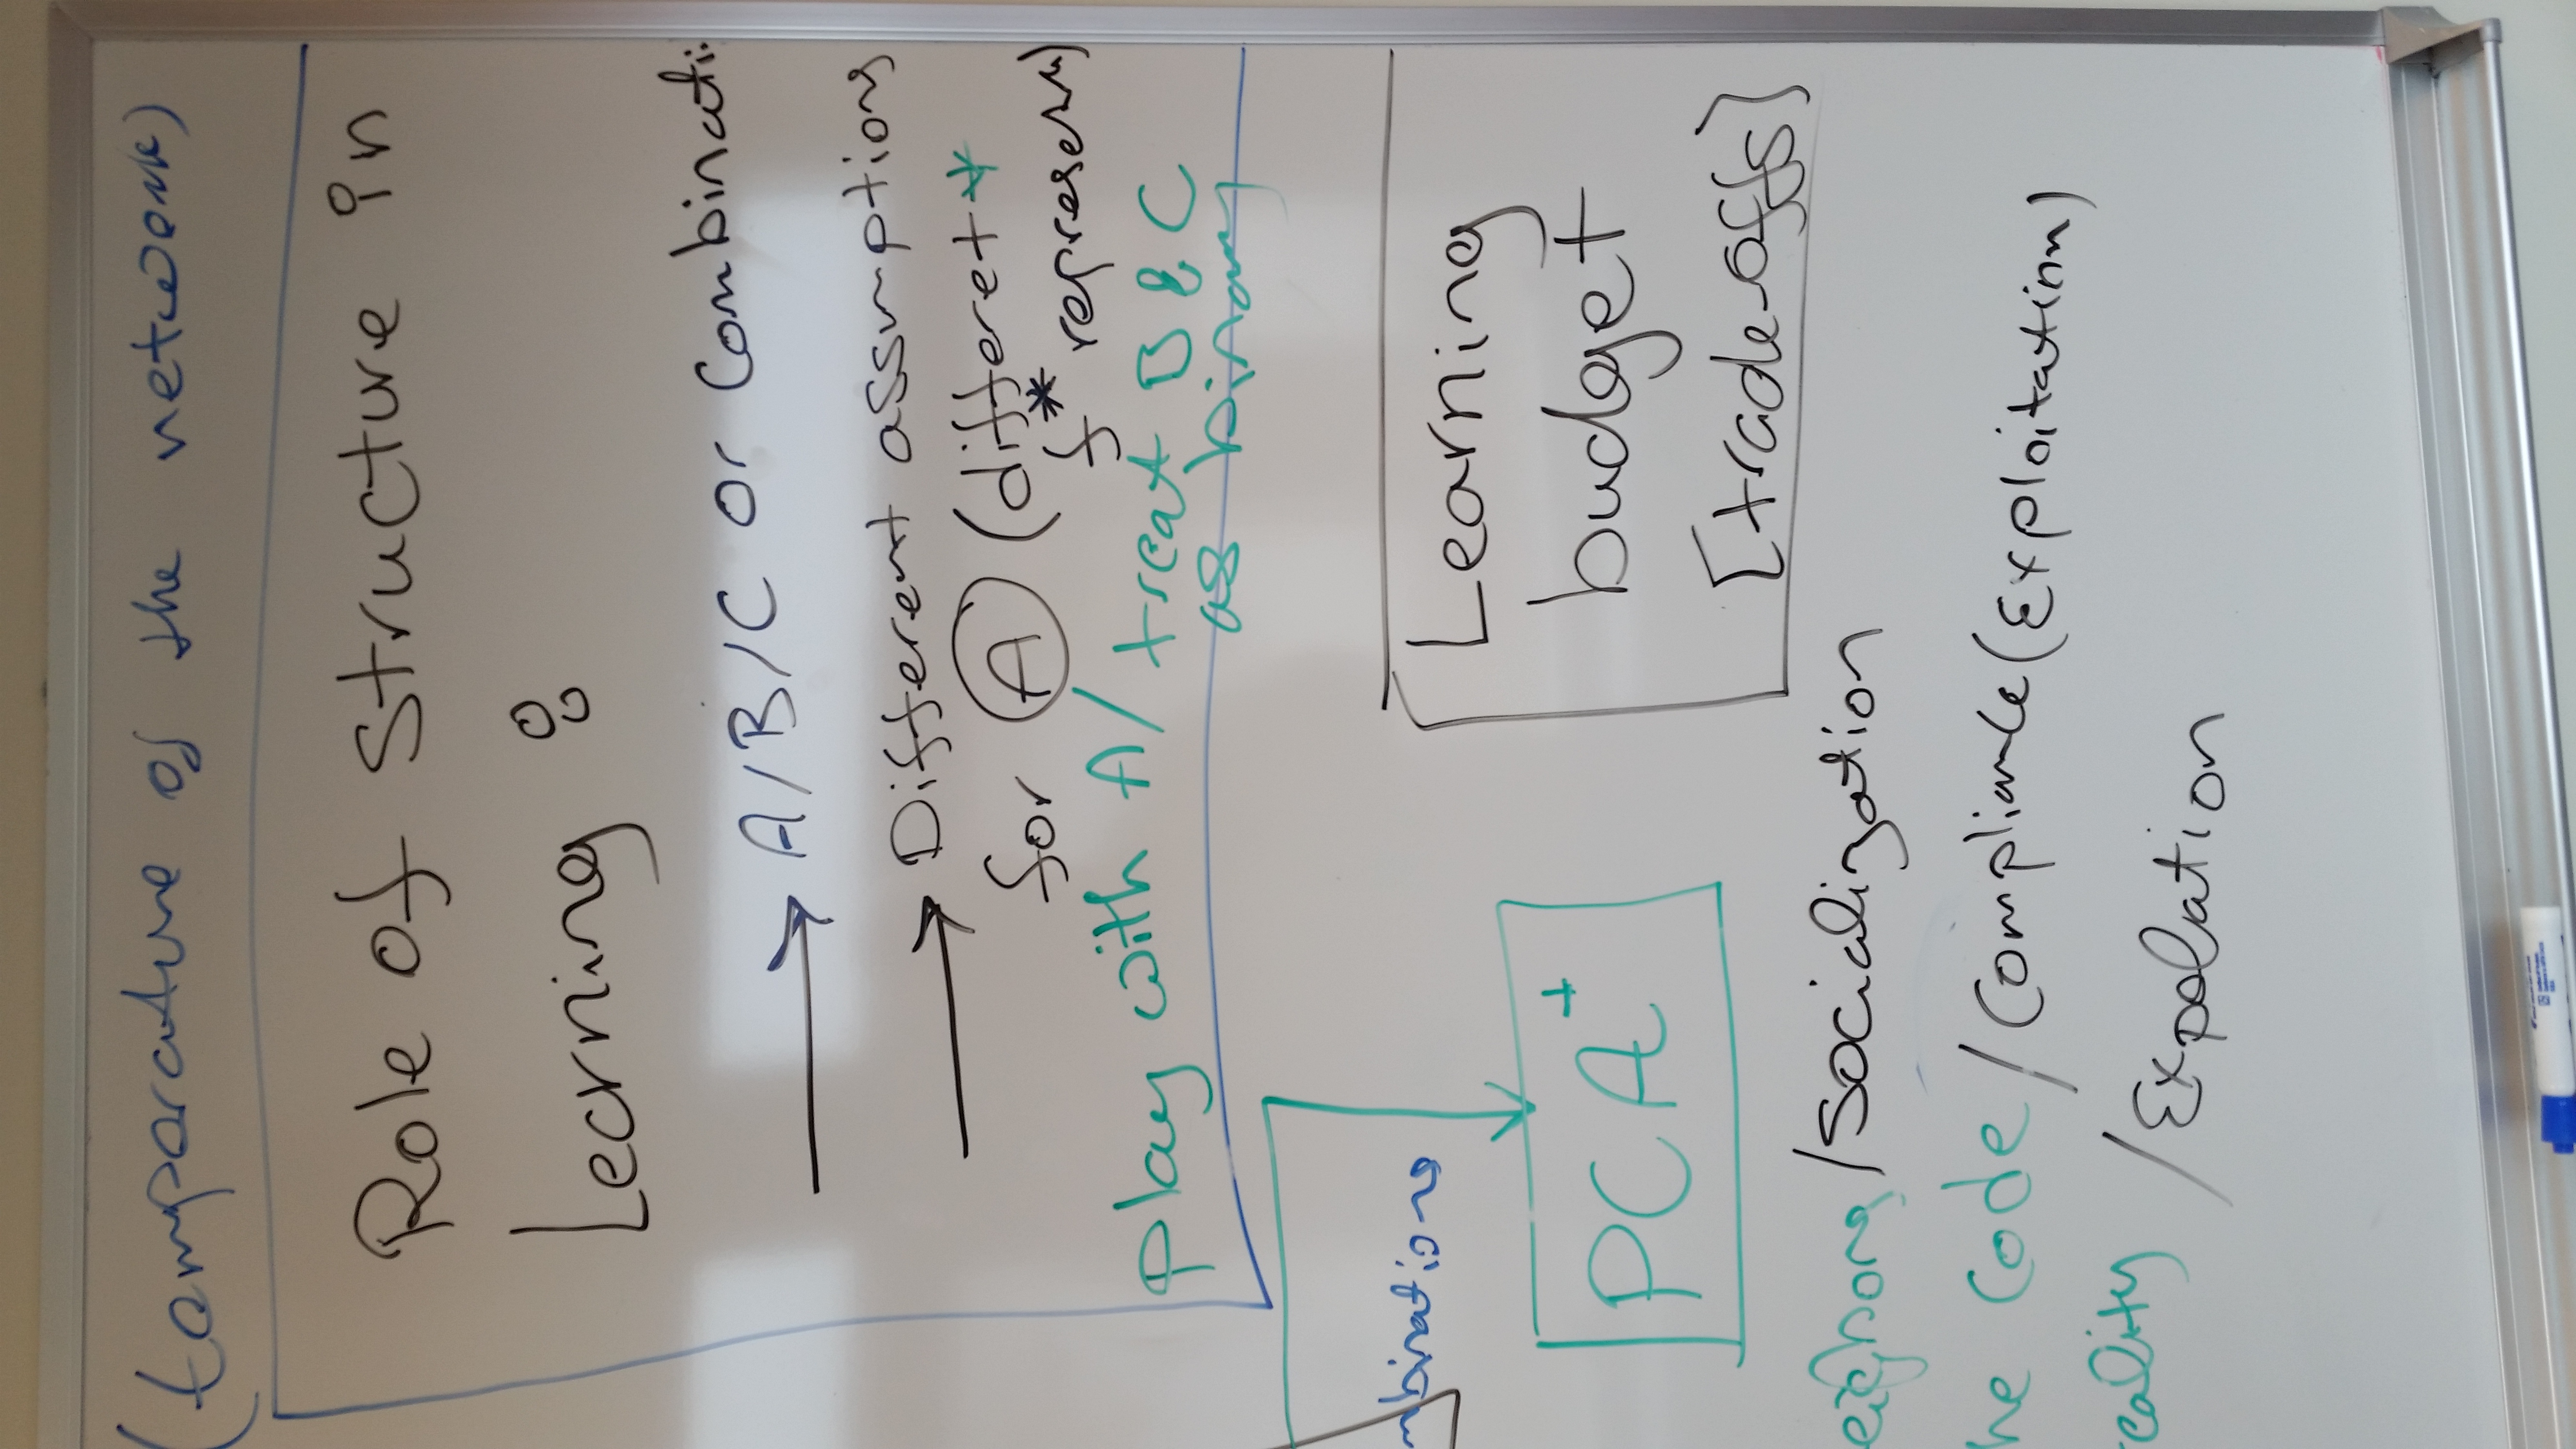 (temperature of the network)
Role of Structure in
Learning :
→ A/B/C or Combinati
→ Different assumptions
for A (differet
f* represen)
play with A/ treat B & C
as binary
mbinations
PCA+
Learning
budget
[trade-offs]
eighors/Socialization
he Code/Compliance(Exploitation)
eality /Expolation